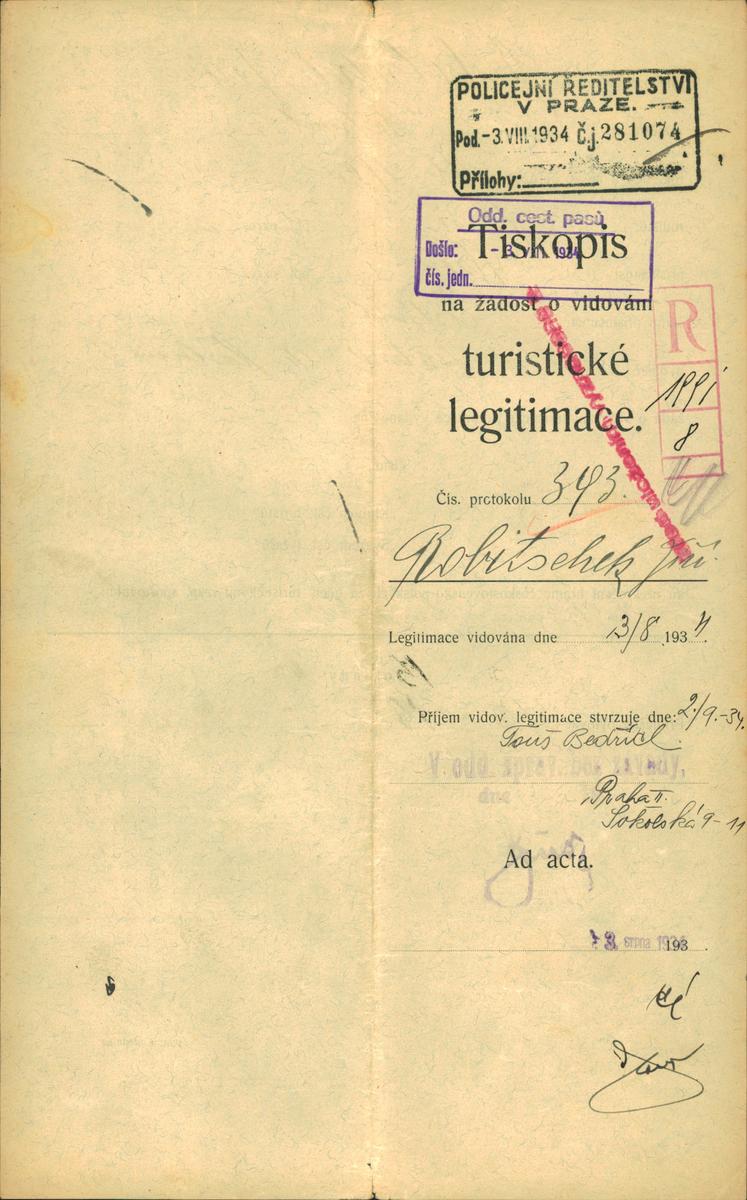 POLICEJNÍ ŘEDITELSTVÍ
V PRAZE.
Pod. -3.VIII.1934 č.j. 281074
Přílohy:
Odd. cest. pasů
Došlo: -3. VIII. 1934
čís. jedn.
Tiskopis
na žádost o vidování
turistické
legitimace.
R
1991
8
Čís. protokolu 393.
Robitschek Jiří
Legitimace vidována dne 3/8 1934.
Příjem vidov. legitimace stvrzuje dne: 2./9.-34.
Bedřich
V odd. správ. bez závady,
dne
Praha II.
Sokolská 9-11
Ad acta.
3. srpna 1934 193 .